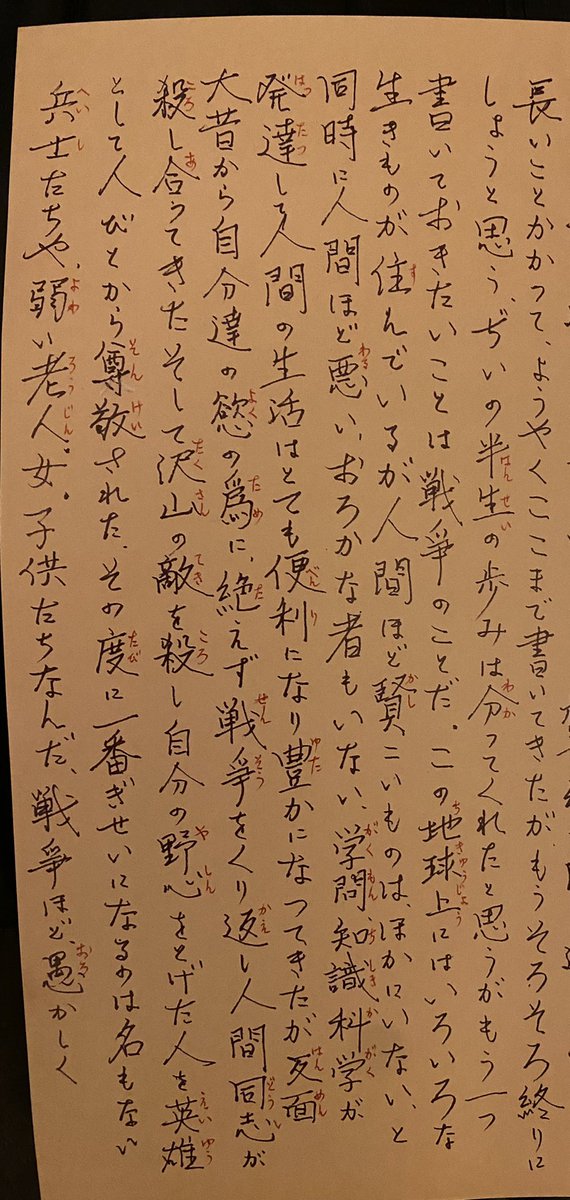 長いことかかって、ようやくここまで書いてきたがもうそろそろ終りに
しようと思う、ぢいの半生の歩みは分ってくれたと思うがもう一つ
書いておきたいことは戦争のことだ。この地球上にはいろいろな
生きものが住んでいるが人間ほど賢こいものは、ほかにいない、と
同時に人間ほど悪い、おろかな者もいない、学問、知識科学が
発達して人間の生活はとても便利になり豊かになってきたが反面
大昔から自分達の慾の為に、絶えず戦争をくり返し人間同志が
殺し合ってきたそして沢山の敵を殺し自分の野心をとげた人を英雄
として人びとから尊敬された、その度に一番ぎせいになるのは名もない
兵士たちや、弱い老人。女。子供たちなんだ、戦爭ほど、愚かしく